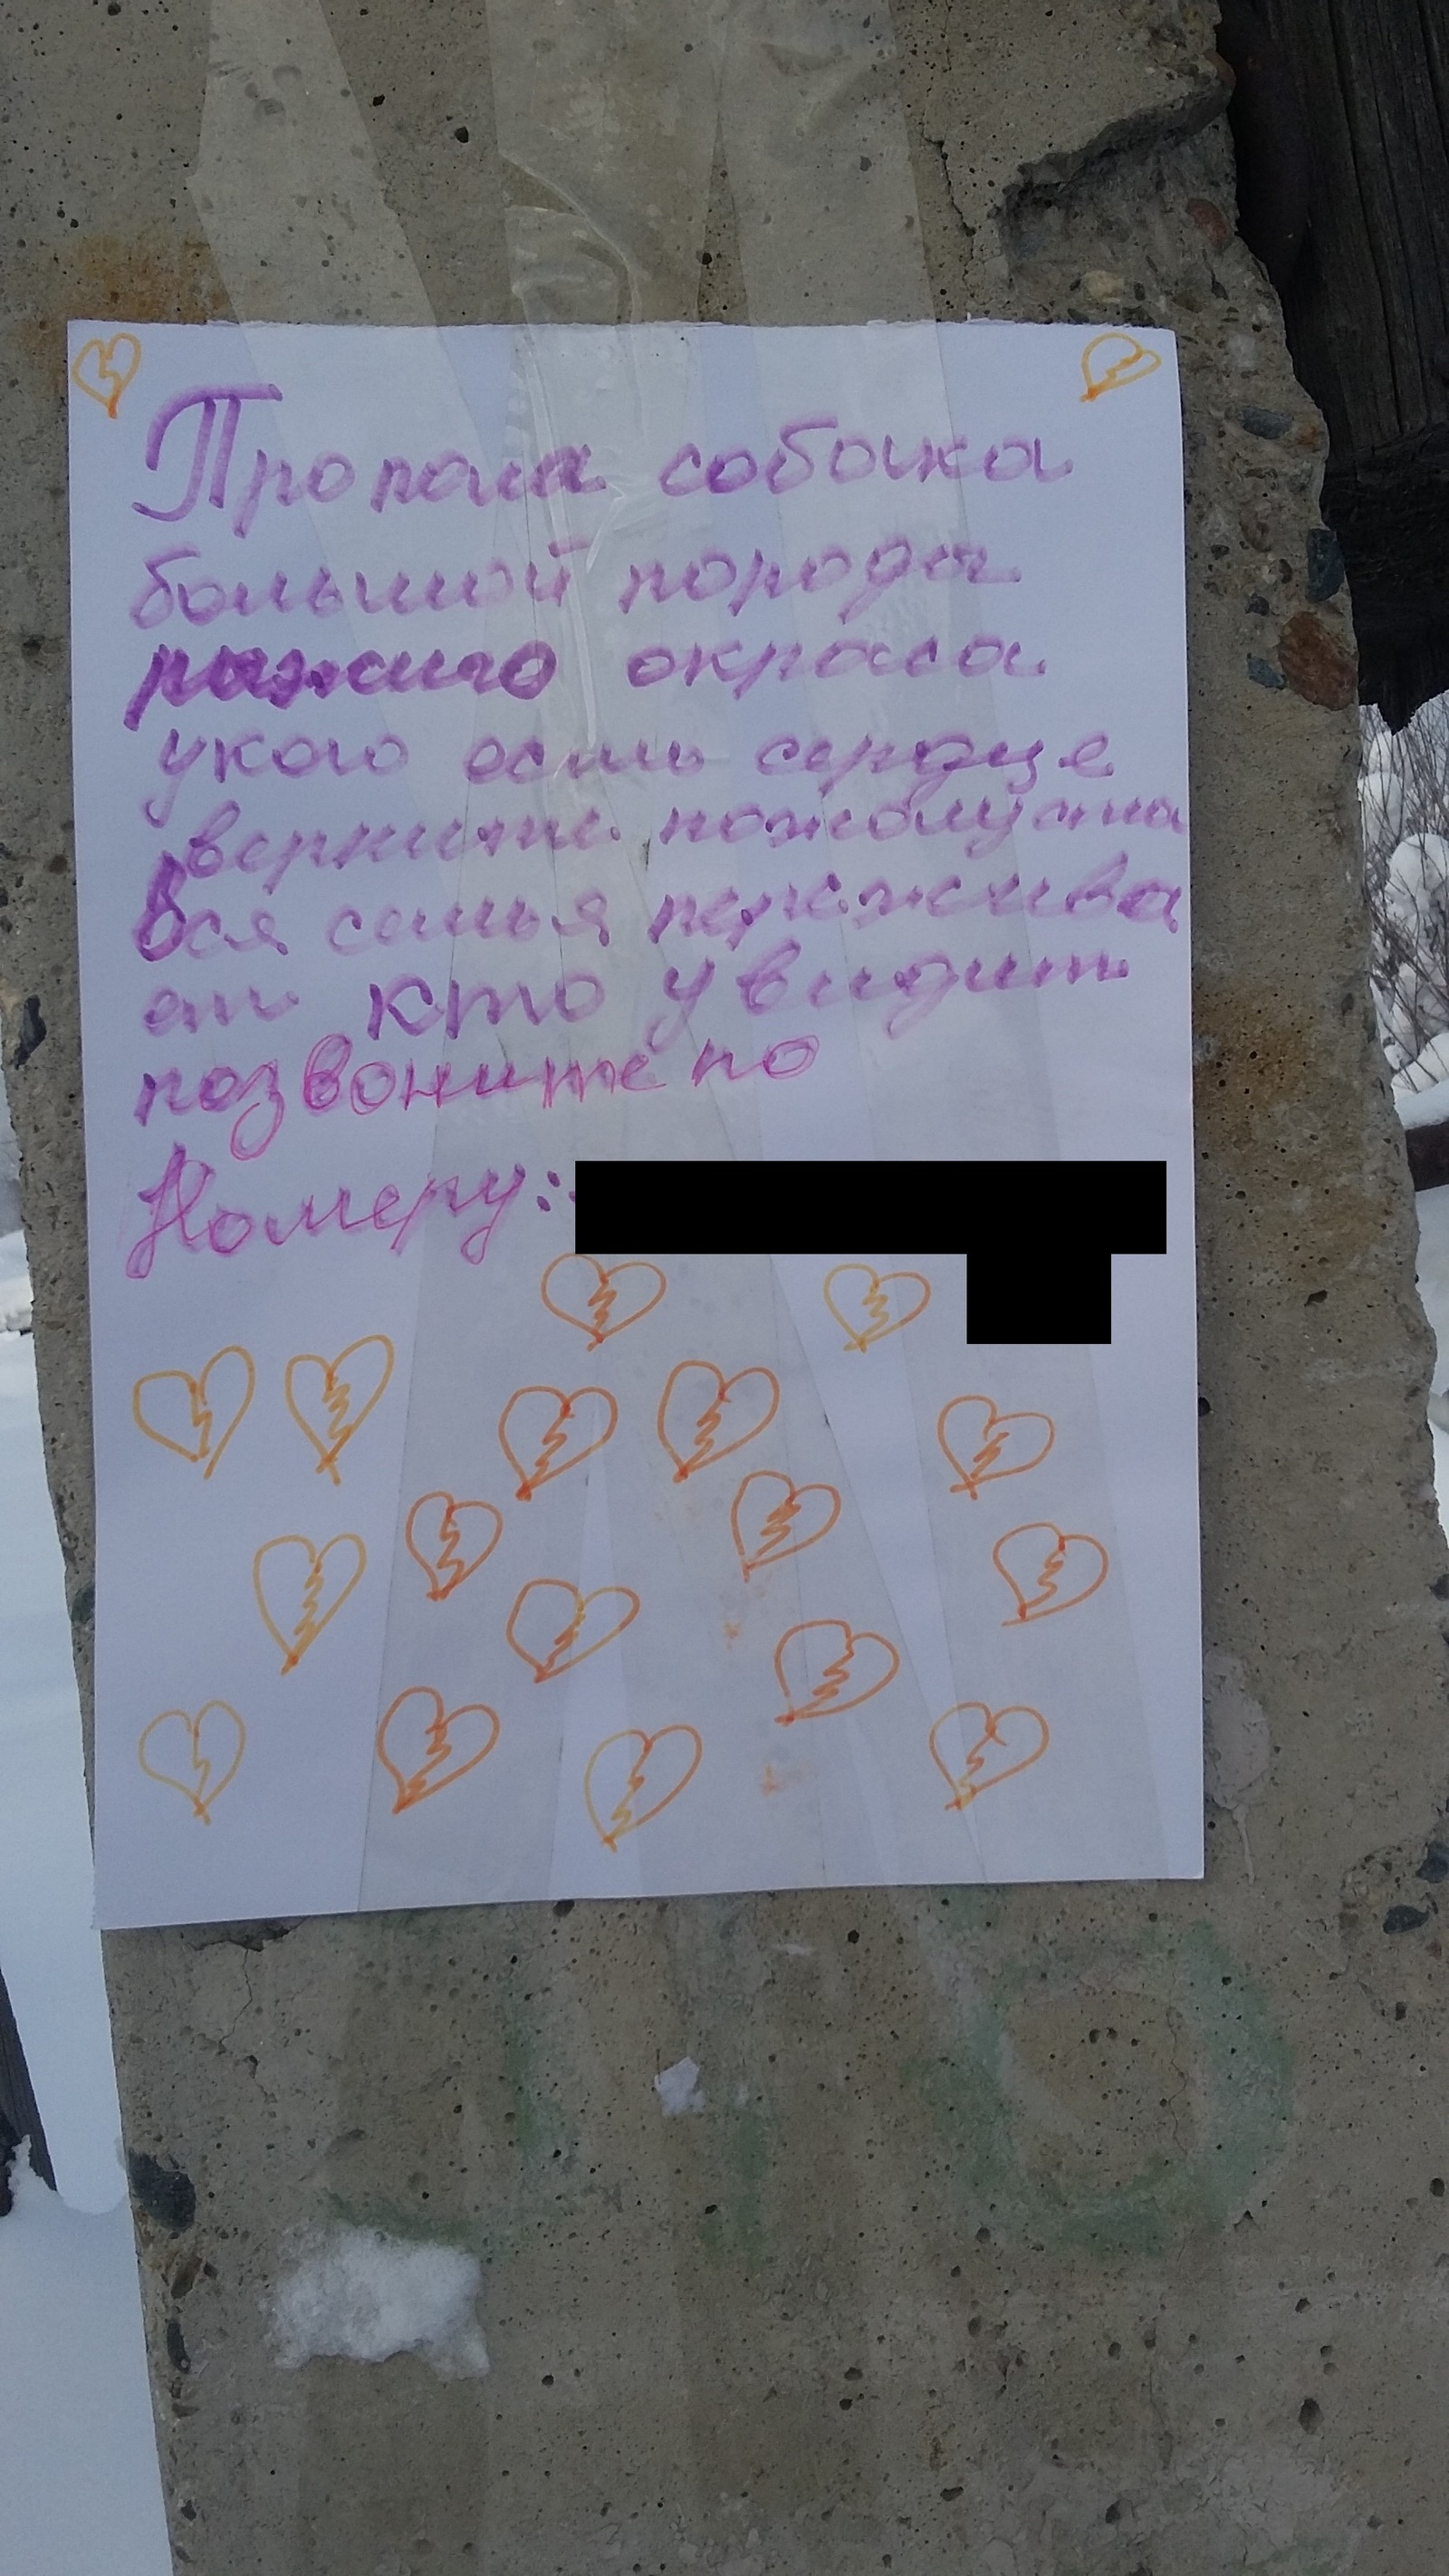 Пропала собака
большой порода
рыжего окраса
укого есть сердце
верните пожалуста
Вся семья пережива
ет кто увидит
позвоните по
Номеру: